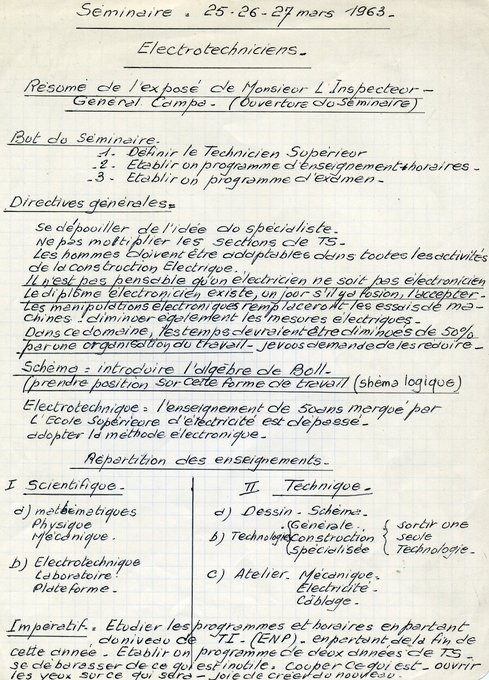 Séminaire = 25-26-27 mars 1963-
Electrotechniciens-
Résumé de l'exposé de Monsieur L'Inspecteur-
Général Campa- (Ouverture du Séminaire)
But du Séminaire-
1- Définir le Technicien Supérieur
2- Etablir un programme d'enseignement+horaires-
3- Etablir un programme d'examen-
Directives générales=
Se dépouiller de l'idée du spécialiste-
Ne pas multiplier les sections de TS-
Les hommes doivent être adaptables dans toutes les activités
de la construction Electrique-
Il n'est pas pensable qu'un électricien ne soit pas électronicien
Le diplôme électronicien existe, un jour s'il y a fusion, l'accepter-
Les manipulations électroniques remplaceront les essais de ma-
chines! diminuer également les mesures électriques-
Dans ce domaine, les temps devraient être diminués de 50%
par une organisation du travail- je vous demande de les réduire-
Schéma= introduire l'algèbre de Boll-
(prendre position sur cette forme de travail (shéma logique)
Electrotechnique= l'enseignement de 50ans marqué par
L'Ecole Supérieure d'électricité est dépassé-
adopter la méthode électronique-
Répartition des enseignements-
I Scientifique-
a) mathématiques
Physique
Mécanique.
b) Electrotechnique
Laboratoire
Plateforme-
II Technique-
a) Dessin- Schéma-
b) Technologie (Générale. Construction Spécialisée { sortir une seule Technologie-
c) Atelier- Mécanique-
Électricité-
Câblage-
Impératif= Etudier les programmes et horaires en partant
du niveau de TI- (ENP)- en partant de la fin de
cette année- Etablir un programme de deux années de TS-
se débarasser de ce qui est inutile- couper ce qui est- ouvrir
les yeux sur ce qui sera- Joie de créer du nouveau-